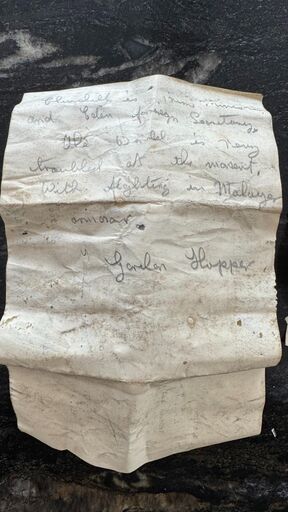 Churchill is Prime Minister
and Eden foreign Secretary,
The World is very
troubled at the moment,
With fighting in
Gordon Hopper